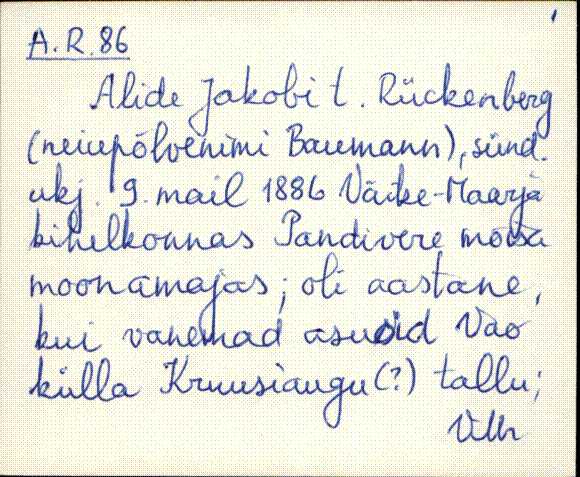 A. R. 86
Alide Jakobi t. Rückenberg
(neiupõlvenimi Baumann), sünd.
ukj. 9. mail 1886 Väike-Maarja
kihelkonnas Pandivere mõisa
moonamajas; oli aastane,
kui vanemad asusid Vao
külla Kruusiaugu (?) tallu;